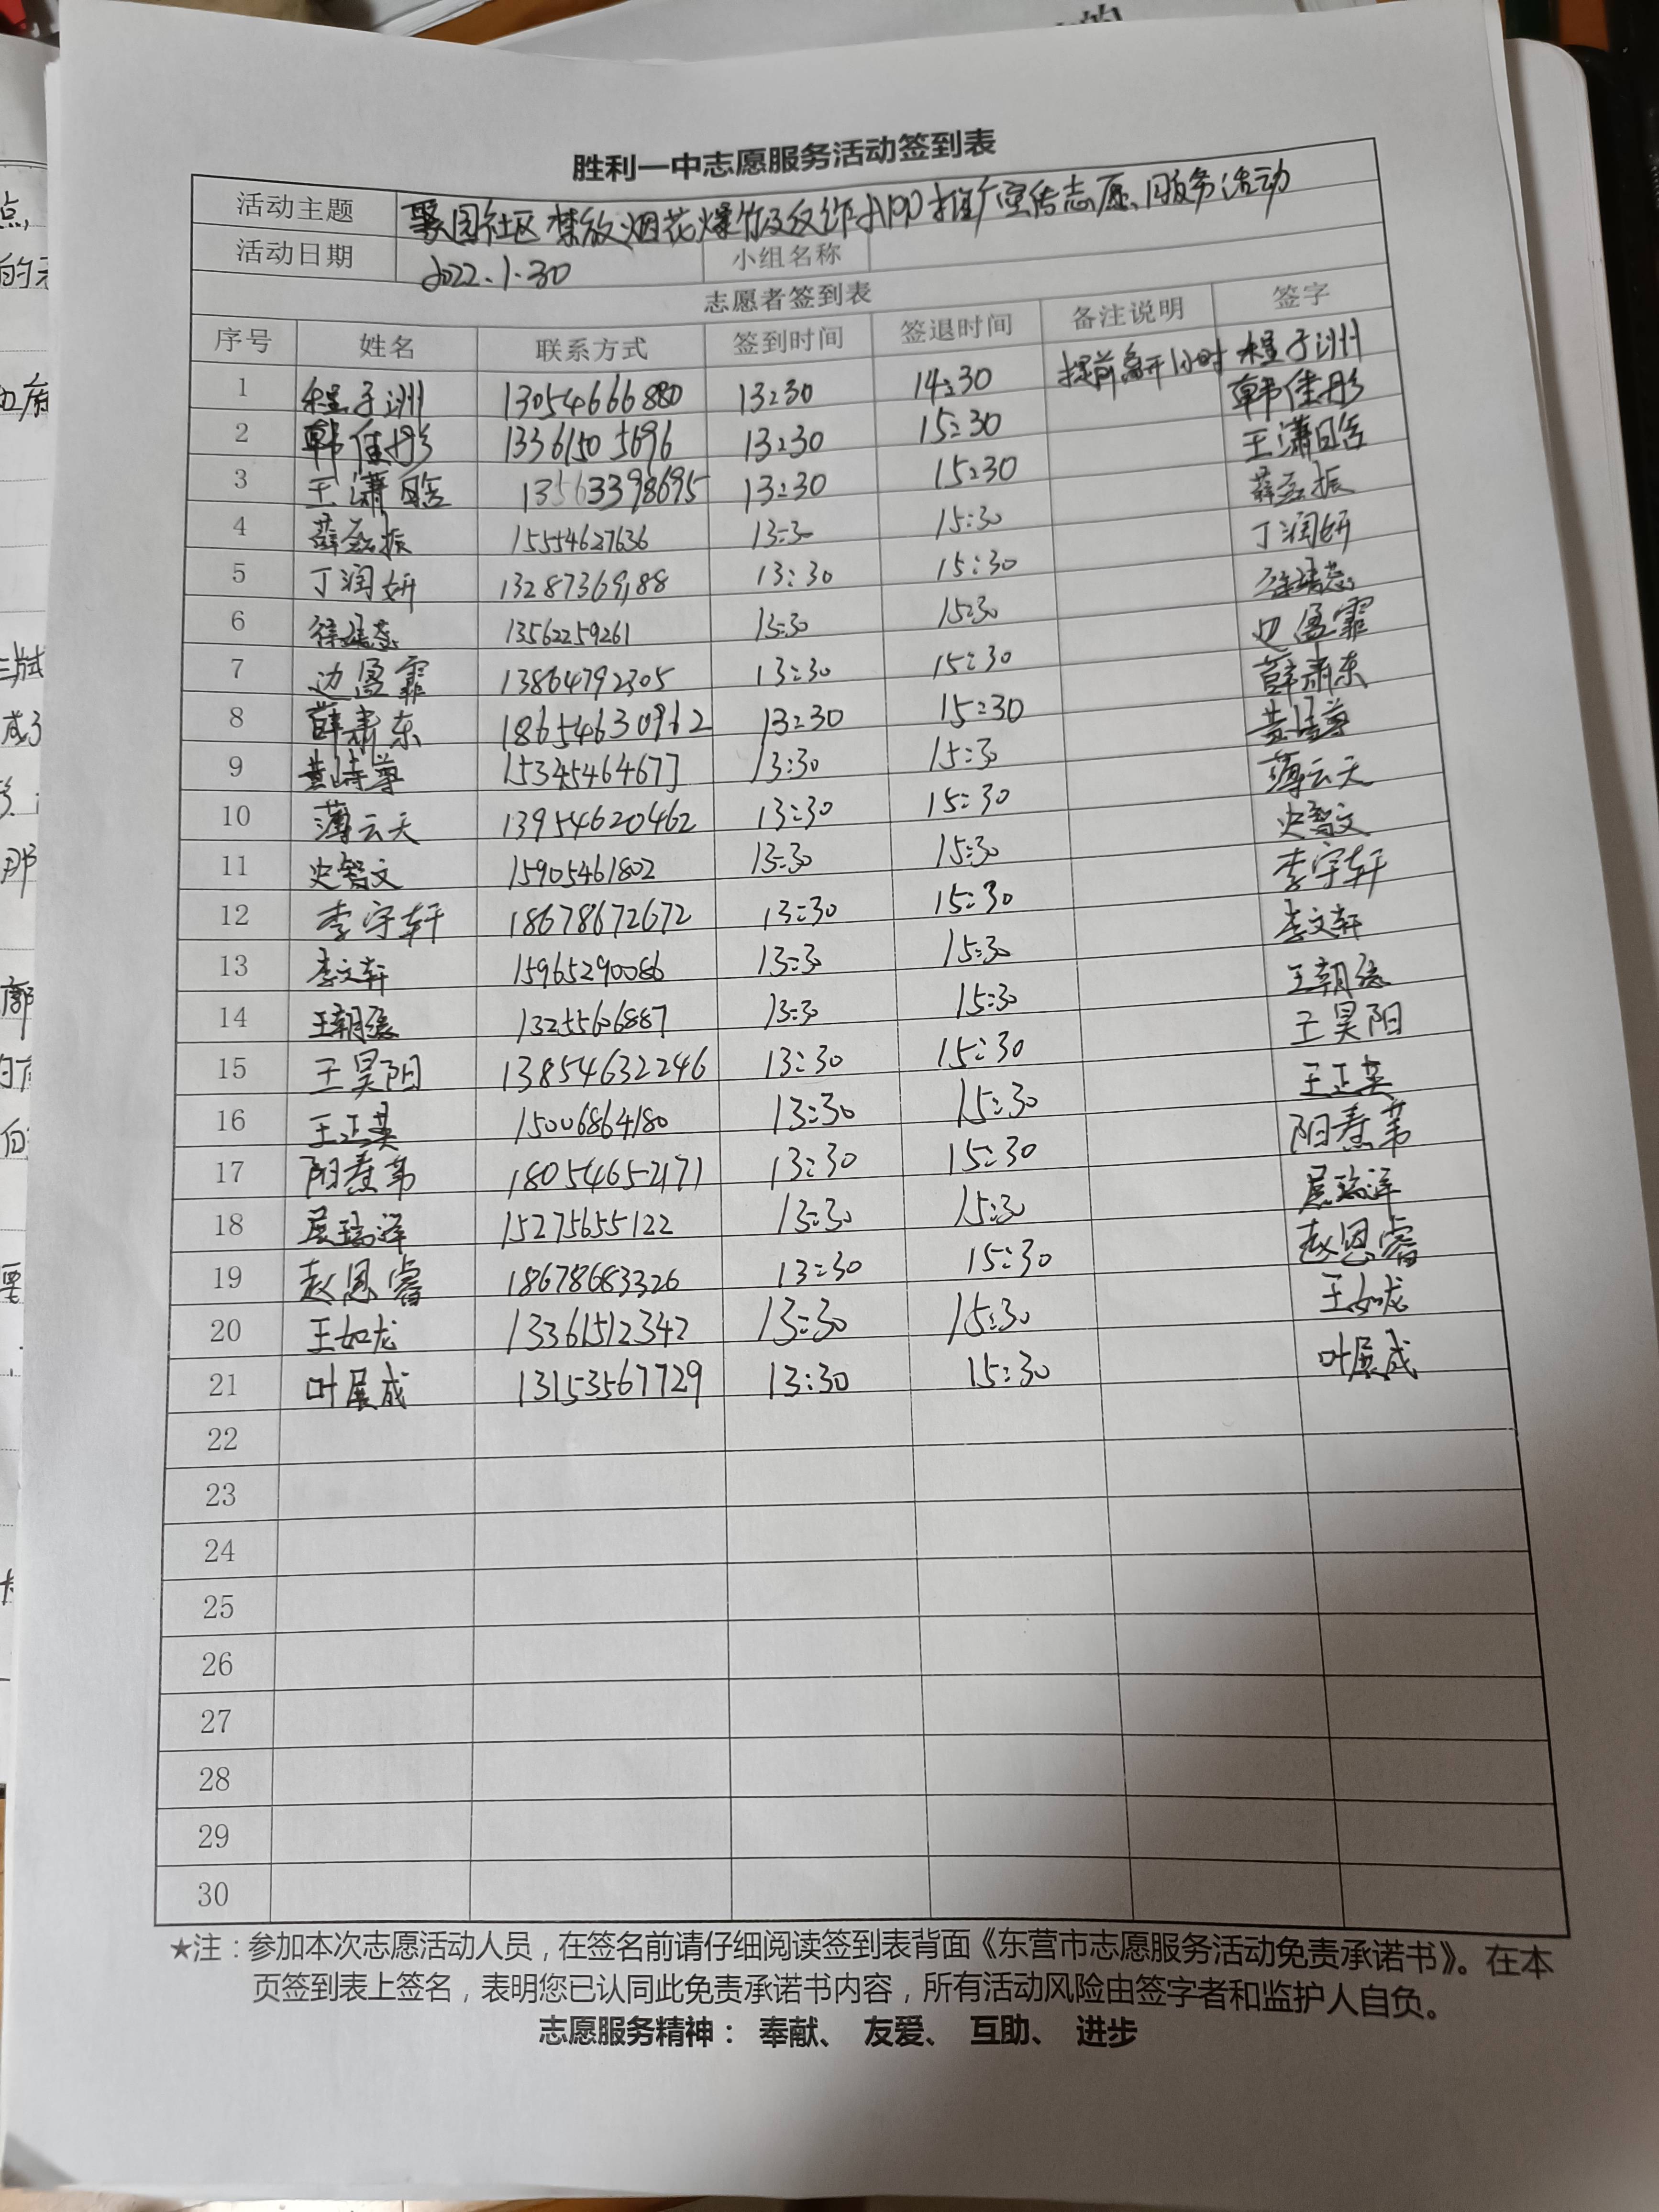 胜利一中志愿服务活动签到表
活动主题 聚园社区禁放烟花爆竹及反诈APP推广宣传志愿服务活动
活动日期 2022.1.30 小组名称
志愿者签到表
序号 姓名 联系方式 签到时间 签退时间 备注说明 签字
1 程子洲 13054666880 13:30 14:30 提前离开1小时 程子洲
2 韩佳彤 13361505696 13:30 15:30 韩佳彤
3 王潇晗 13563398695 13:30 15:30 王潇晗
4 15554627636 13:30 15:30
5 丁润妍 13287369188 13:30 15:30 丁润妍
6 13562259261 13:30 15:30
7 边盈霏 13864792305 13:30 15:30 边盈霏
8 薛肃东 18654630962 13:30 15:30 薛肃东
9 15345464677 13:30 15:30
10 薄云天 13954620462 13:30 15:30 薄云天
11 史智文 15905461802 13:30 15:30 史智文
12 李宇轩 18678672672 13:30 15:30 李宇轩
13 李文轩 15965290086 13:30 15:30 李文轩
14 13255606887 13:30 15:30
15 王昊阳 13854632246 13:30 15:30 王昊阳
16 王正英 15006864180 13:30 15:30 王正英
17 18054652171 13:30 15:30
18 展瑞泽 15275655122 13:30 15:30 展瑞泽
19 赵恩睿 18678683326 13:30 15:30 赵恩睿
20 王如龙 13361512342 13:30 15:30 王如龙
21 叶展成 13153567729 13:30 15:30 叶展成
22
23
24
25
26
27
28
29
30
★注：参加本次志愿活动人员，在签名前请仔细阅读签到表背面《东营市志愿服务活动免责承诺书》。在本
页签到表上签名，表明您已认同此免责承诺书内容，所有活动风险由签字者和监护人自负。
志愿服务精神： 奉献、 友爱、 互助、 进步